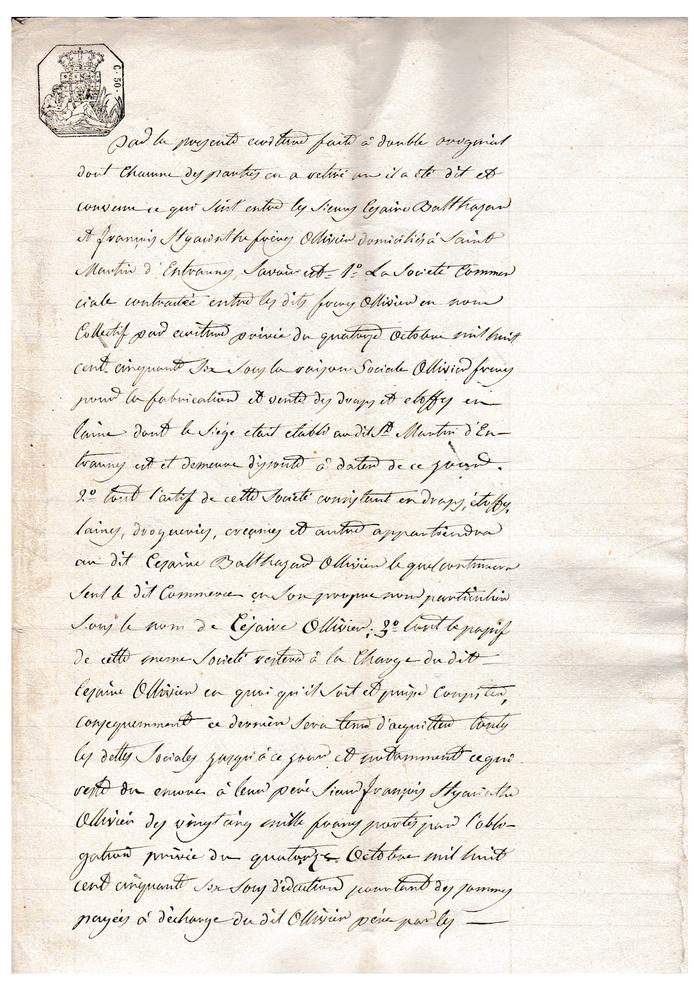 C. 50.
Par la presente ecriture faite à double original
dont chacune des parties en a retiré un il a été dit et
convenu ce qui suit entre les Sieurs Césaire Balthazar
et françois Hyacinthe freres Ollivier domiciliés à Saint
Martin d'Entraunes, Savoir est = 1º La Société Commer
ciale contractée entre les dits freres Ollivier en nom
Collectif par ecriture privée du quatorze Octobre mil huit
cent cinquant six sous la raison Sociale Ollivier freres
pour la fabrication et vente des draps et etoffes en
laine dont le Siége etait etabli au dit St Martin d'En-
traunes est et demeure dissoute à dater de ce jour.
2º tout l'actif de cette Société consistant en draps, étoffes,
laines, drogueries, creances et autre appartiendra
au dit Césaire Balthazar Ollivier le quel continuera
seul le dit Commerce en son propre nom particulier
sous le nom de Césaire Ollivier; 3º tout le passif
de cette meme Société restera à la Charge du dit
Cesaire Ollivier en quoi qu'il soit et puisse consister,
consequemment ce dernier sera tenu d'acquitter toutes
les dettes Sociales jusqu'à ce jour et notamment ce qui
reste du encore à leur père Sieur françois Hyacinthe
Ollivier des vingt cinq mille francs portés par l'obli-
gation privée du quatorze Octobre mil huit
cent cinquant six sous déduction pourtant des sommes
payées à décharge du dit Ollivier père par les